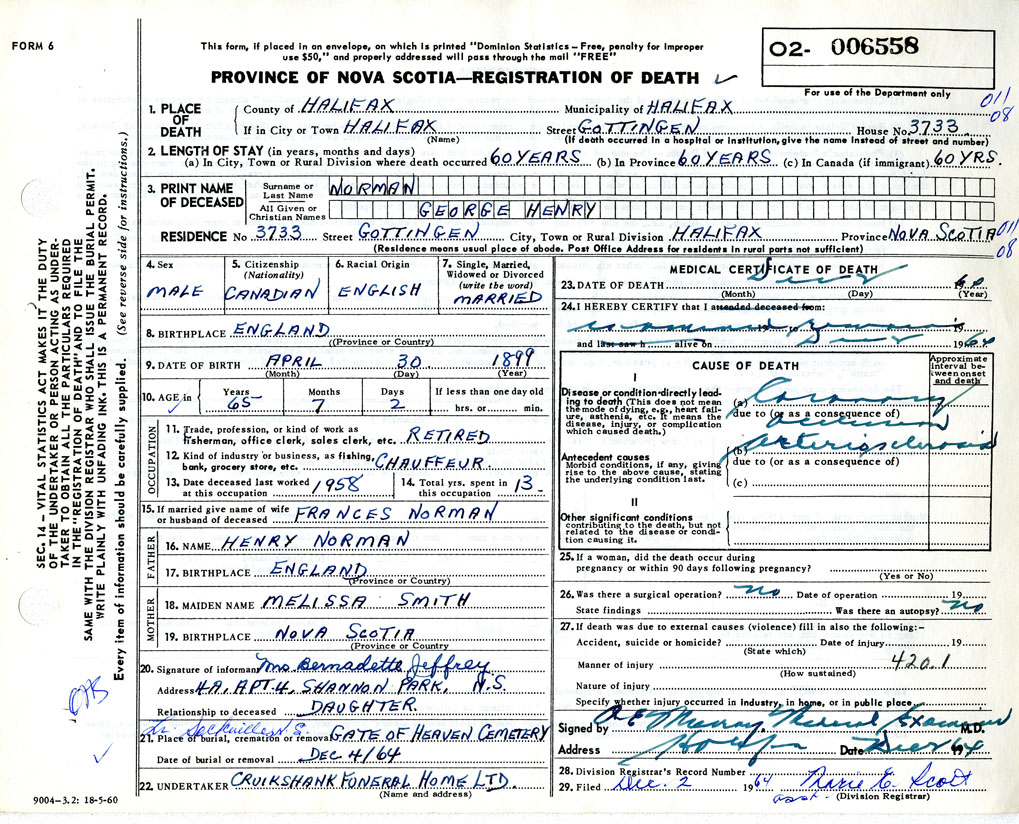 FORM 6
This form, if placed in an envelope, on which is printed "Dominion Statistics – Free, penalty for improper
use $50," and properly addressed will pass through the mail "FREE"
PROVINCE OF NOVA SCOTIA—REGISTRATION OF DEATH
O2- 006558
For use of the Department only
011
08
1. PLACE OF DEATH
County of HALIFAX Municipality of HALIFAX
If in City or Town HALIFAX Street GOTTINGEN House No. 3733
(Name) (If death occurred in a hospital or institution, give the name instead of street and number)
2. LENGTH OF STAY (in years, months and days)
(a) In City, Town or Rural Division where death occurred 60 YEARS (b) In Province 60 YEARS (c) In Canada (if immigrant) 60 YRS.
3. PRINT NAME OF DECEASED
Surname or Last Name NORMAN
All Given or Christian Names GEORGE HENRY
RESIDENCE No 3733 Street GOTTINGEN City, Town or Rural Division HALIFAX Province NOVA SCOTIA
011
08
(Residence means usual place of abode. Post Office Address for residents in rural parts not sufficient)
4. Sex
MALE
5. Citizenship
(Nationality)
CANADIAN
6. Racial Origin
ENGLISH
7. Single, Married,
Widowed or Divorced
(write the word)
MARRIED
8. BIRTHPLACE ENGLAND
(Province or Country)
9. DATE OF BIRTH APRIL 30 1899
(Month) (Day) (Year)
10. AGE in
Years Months Days If less than one day old
65 7 2 hrs. or min.
OCCUPATION
11. Trade, profession, or kind of work as
fisherman, office clerk, sales clerk, etc. RETIRED
12. Kind of industry or business, as fishing,
bank, grocery store, etc. CHAUFFEUR.
13. Date deceased last worked
at this occupation 1958
14. Total yrs. spent in
this occupation 13
15. If married give name of wife
or husband of deceased FRANCES NORMAN
FATHER
16. NAME HENRY NORMAN
17. BIRTHPLACE ENGLAND
(Province or Country)
MOTHER
18. MAIDEN NAME MELISSA SMITH
19. BIRTHPLACE NOVA SCOTIA
(Province or Country)
20. Signature of informant Mrs Bernadette Jeffrey
Address 4A, APT. 4, SHANNON PARK, N.S.
Relationship to deceased DAUGHTER.
Lr. Sackville N.S.
21. Place of burial, cremation or removal GATE OF HEAVEN CEMETERY
Date of burial or removal DEC 4/64
22. UNDERTAKER CRUIKSHANK FUNERAL HOME LTD.
(Name and address)
MEDICAL CERTIFICATE OF DEATH
23. DATE OF DEATH Dec 2
(Month) (Day) (Year)
24. I HEREBY CERTIFY that I attended deceased from:
19 to 19
and last saw h alive on Dec 1964
CAUSE OF DEATH
Approximate
interval be-
tween onset
and death
I
Disease or condition directly lead-
ing to death (This does not mean
the mode of dying, e.g., heart fail-
ure, asthenia, etc. It means the
disease, injury, or complication
which caused death.)
(a) Coronary
due to (or as a consequence of)
occlusion
(b) arteriosclerosis
Antecedent causes
Morbid conditions, if any, giving
rise to the above cause, stating
the underlying condition last.
due to (or as a consequence of)
(c)
II
Other significant conditions
contributing to the death, but not
related to the disease or condi-
tion causing it.
25. If a woman, did the death occur during
pregnancy or within 90 days following pregnancy?
(Yes or No)
26. Was there a surgical operation? no Date of operation 19
State findings Was there an autopsy? no
27. If death was due to external causes (violence) fill in also the following:-
Accident, suicide or homicide? Date of injury 19
(State which)
Manner of injury 420.1
(How sustained)
Nature of injury
Specify whether injury occurred in industry, in home, or in public place
Signed by Murray, Medical Examiner M.D.
Address Hfx Date Dec 64
28. Division Registrar's Record Number
29. Filed Dec. 2 1964 Marie E. Scott
asst. (Division Registrar)
SEC. 14 – VITAL STATISTICS ACT MAKES IT THE DUTY
OF THE UNDERTAKER OR PERSON ACTING AS UNDER-
TAKER TO OBTAIN ALL THE PARTICULARS REQUIRED
IN THE "REGISTRATION OF DEATH" AND TO FILE THE
SAME WITH THE DIVISION REGISTRAR WHO SHALL ISSUE THE BURIAL PERMIT.
WRITE PLAINLY WITH UNFADING INK. THIS IS A PERMANENT RECORD.
Every item of information should be carefully supplied. (See reverse side for instructions.)
9004–3.2: 18-5-60